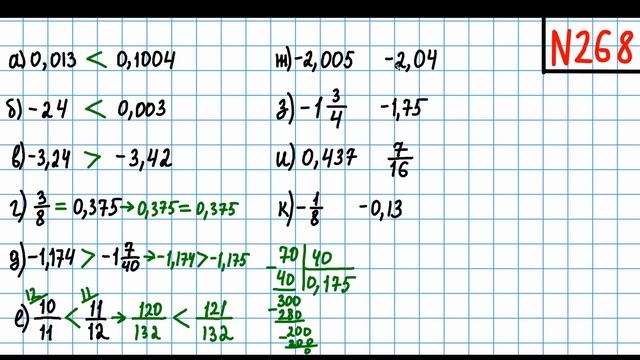 N268
а) 0,013 < 0,1004
б) -24 < 0,003
в) -3,24 > -3,42
г) 3/8 = 0,375 → 0,375 = 0,375
д) -1,174 > -1 7/40 → -1,174 > -1,175
е) 12 10/11 < 11 11/12 → 120/132 < 121/132
ж) -2,005 -2,04
з) -1 3/4 -1,75
и) 0,437 7/16
к) -1/8 -0,13
70 | 40
- 40 | 0,175
300
- 280
- 200
200
0